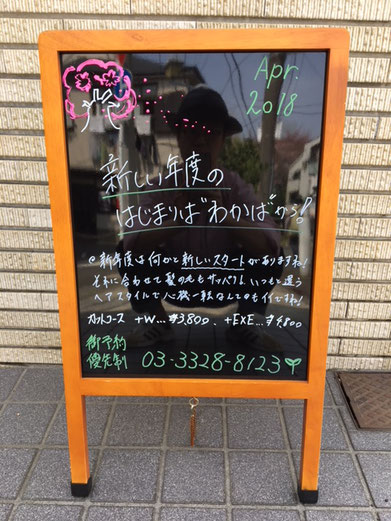 Apr.
2018
新しい年度の
はじまりは"わかば"から!
新年度は何かと新しいスタートがありますね!
それに合わせて髪の毛もサッパリと、いつもと違う
ヘアスタイルで心機一転なんてのもイイですね!
カットコース +W...¥3,800、+EXE...¥4,800
御予約
優先制
03-3328-8123